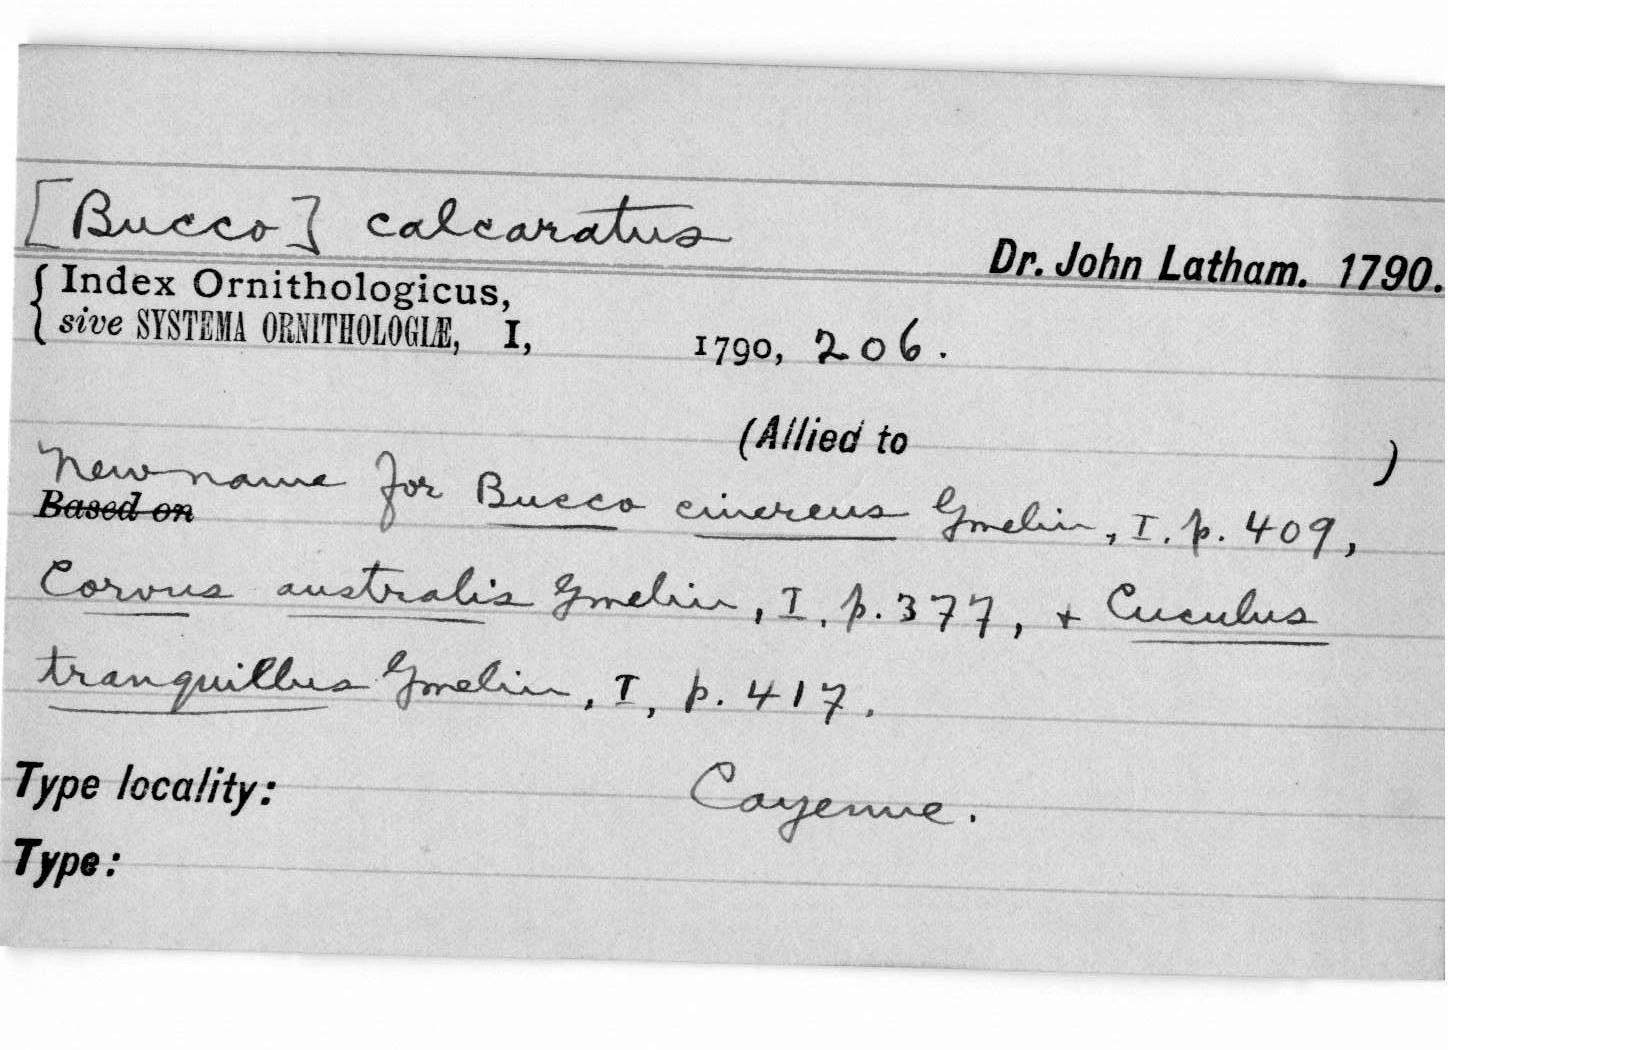 [Bucco] calcaratus
Dr. John Latham. 1790.
Index Ornithologicus,
sive SYSTEMA ORNITHOLOGIÆ, I, 1790, 206.
(Allied to )
New name for Bucco cinereus Gmelin, I. p. 409,
Based on
Corvus australis Gmelin, I, p. 377, + Cuculus
tranquillus Gmelin, I, p. 417.
Type locality: Cayenne.
Type: